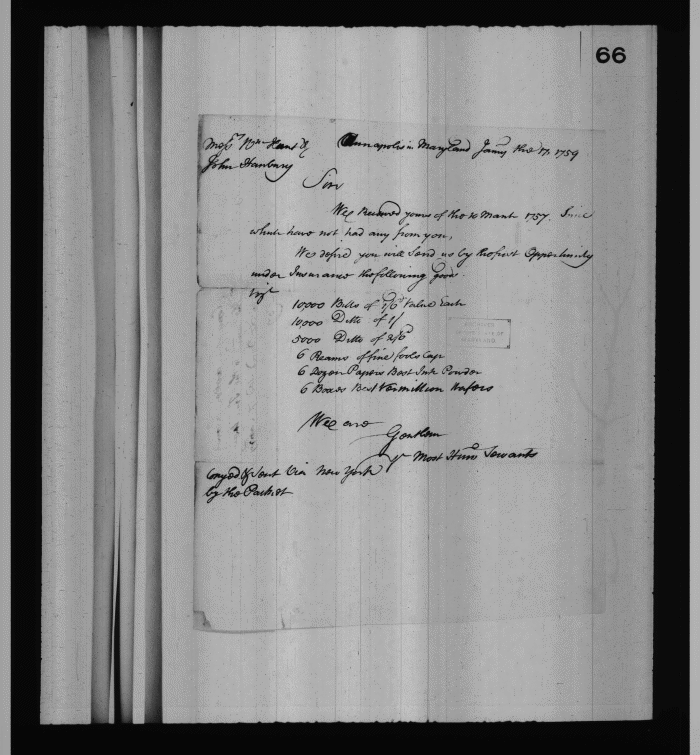 66
Mess.rs Wm Hunt &
John Hanbury
Annapolis in Maryland Jan.ry the 17. 1759
Sirs
Wee Received yours of the 10 March 1757. Since
which have not had any from you,
We desire you will Send us by the first Opportunity
under Insurance the following goods.
Viz.t
10,000 Bills of Value Each
10,000 Ditto of 1/
5000 Ditto of 2/6.d
6 Reams of fine fools Cap
6 Dozen Papers Best Ink Powder
6 Boxes Best Vermillion Wafers
Wee are
Gentlem
y.r Most Hum.e Servants
Copyed & Sent Via New York
by the Packet